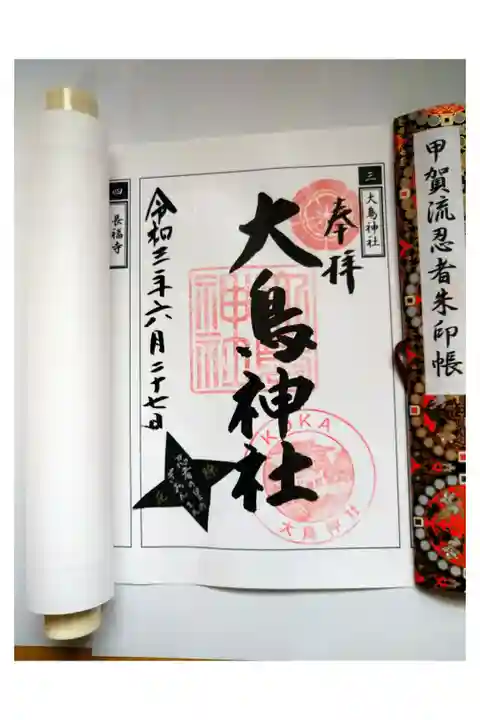 甲賀流忍者朱印帳
三
大鳥神社
奉拝
大鳥神社
KOKA
大鳥神社
令和三年六月二十七日
四
長福寺